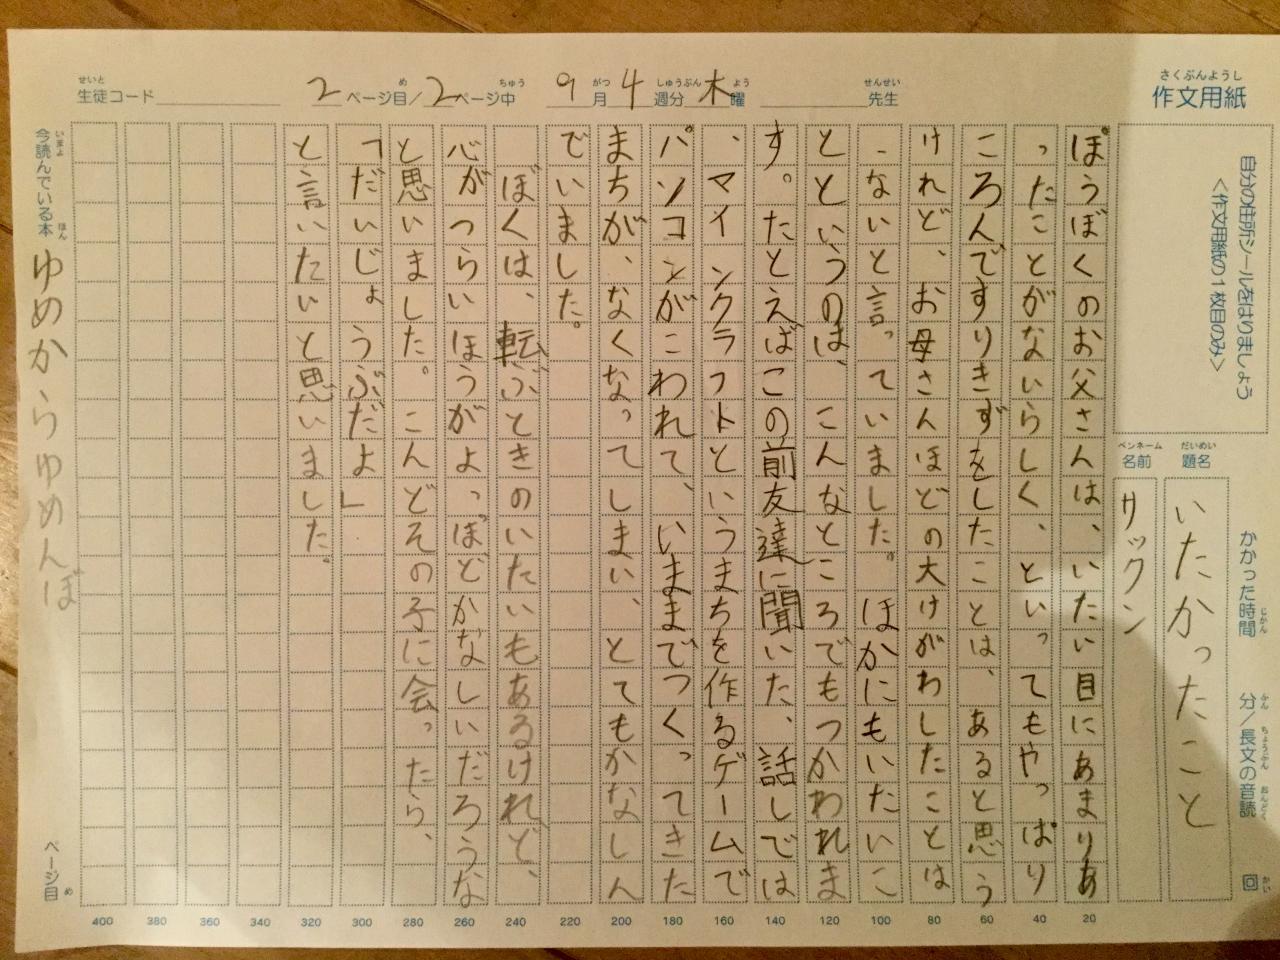 さくぶんようし
作文用紙
せいと
生徒コード
2ページ目/2ページ中
め
ちゅう
9月4週分木曜
がつ
しゅうぶん
よう
先生
せんせい
自分の住所シールをはりましょう
<作文用紙の1枚目のみ>
だいめい
題名
いたかったこと
ペンネーム
名前
サックン
かかった時間
じかん
分/長文の音読
ふん
ちょうぶん
おんどく
回
かい
ぽうぼくのお父さんは、いたい目にあまりあ
ったことがないらしく、といってもやっぱり
ころんですりきずをしたことは、あると思う
けれど、お母さんほどの大けがわしたことは
ーないと言っていました。ほかにもいたいこ
とというのは、こんなところでもつかわれま
す。たとえばこの前友達に聞いた、話しでは
、マインクラフトというまちを作るゲームで
パソコンがこわれて、いままでつくってきた
まちが、なくなってしまい、とてもかなしん
でいました。
ぼくは、転ぶときのいたいもあるけれど、
心がつらいほうがよっぽどかなしいだろうな
と思いました。こんどその子に会ったら、
「だいじょうぶだよ」
と言いたいと思いました。
20
40
60
80
100
120
140
160
180
200
220
240
260
280
300
320
340
360
380
400
いまよ
ほん
今読んでいる本
ゆめからゆめんぼ
ページ目
め